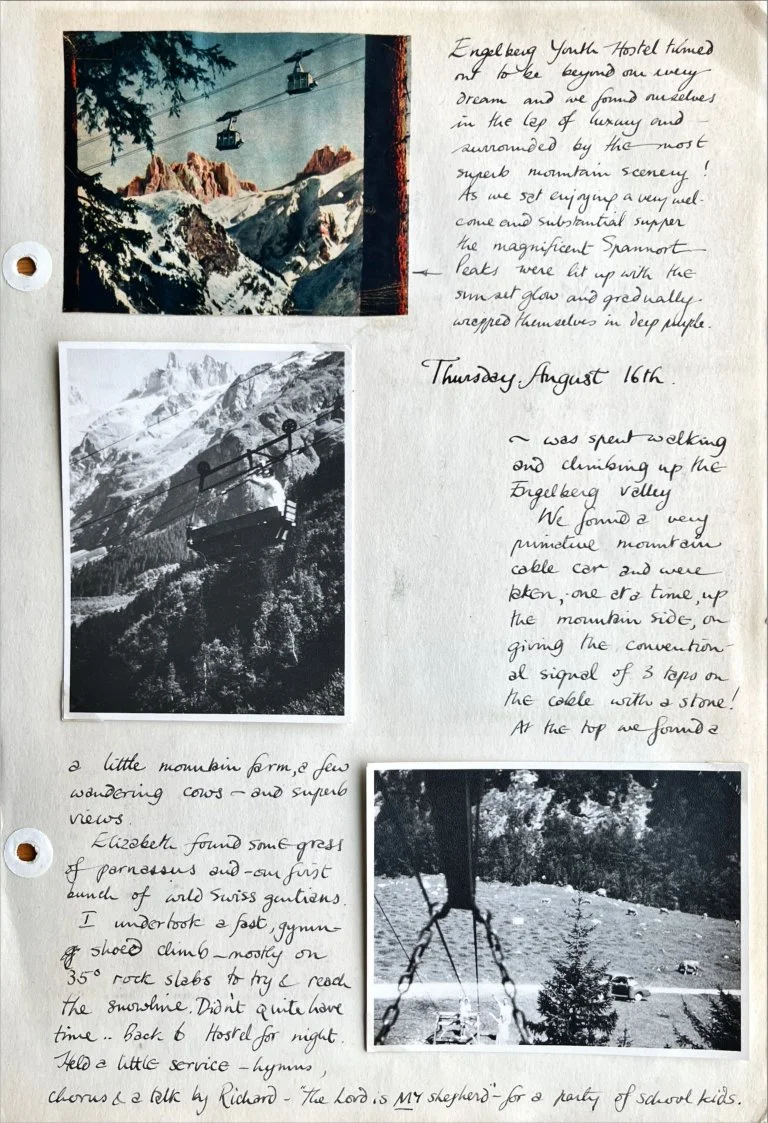 Engelberg Youth Hostel turned
out to be beyond our every
dream and we found ourselves
in the lap of luxury and –
surrounded by the most
superb mountain scenery !
As we sat enjoying a very wel-
come and substantial supper
the magnificent Spannort
Peaks were lit up with the
sunset glow and gradually
wrapped themselves in deep purple.
Thursday. August 16th.
~ was spent walking
and climbing up the
Engelberg Valley
We found a very
primative mountain
cable car and were
taken, one at a time, up
the mountain side, on
giving the convention-
al signal of 3 taps on
the cable with a stone!
At the top we found a
a little mountain farm, a few
wandering cows – and superb
views.
Elizabeth found some grass
of parnassus and – our first
bunch of wild Swiss gentians.
I undertook a fast, gymn-
shoed climb – mostly on
35° rock slabs to try & reach
the snowline. Didn't quite have
time .. Back to Hostel for night.
Held a little service – hymns,
chorus & a talk by Richard – "The Lord is MY shepherd" – for a party of school kids.